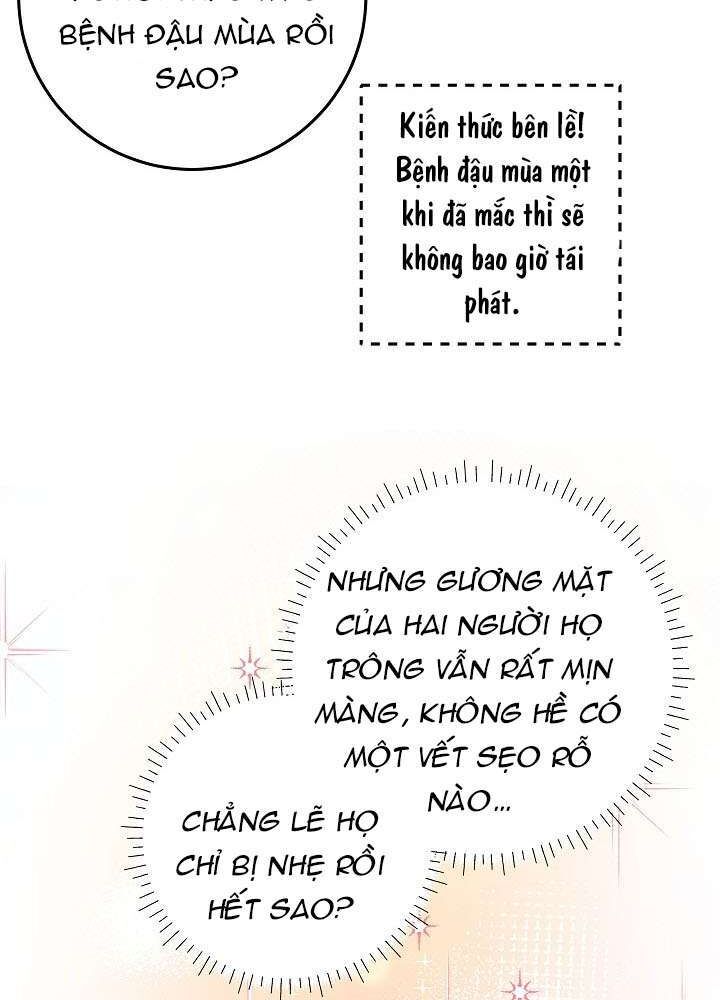 BỆNH ĐẬU MÙA RỒI
SAO?
Kiến thức bên lề!
Bệnh đậu mùa một
khi đã mắc thì sẽ
không bao giờ tái
phát.
NHƯNG GƯƠNG MẶT
CỦA HAI NGƯỜI HỌ
TRÔNG VẪN RẤT MỊN
MÀNG, KHÔNG HỀ CÓ
MỘT VẾT SẸO RỖ
NÀO...
CHẲNG LẼ HỌ
CHỈ BỊ NHẸ RỒI
HẾT SAO?